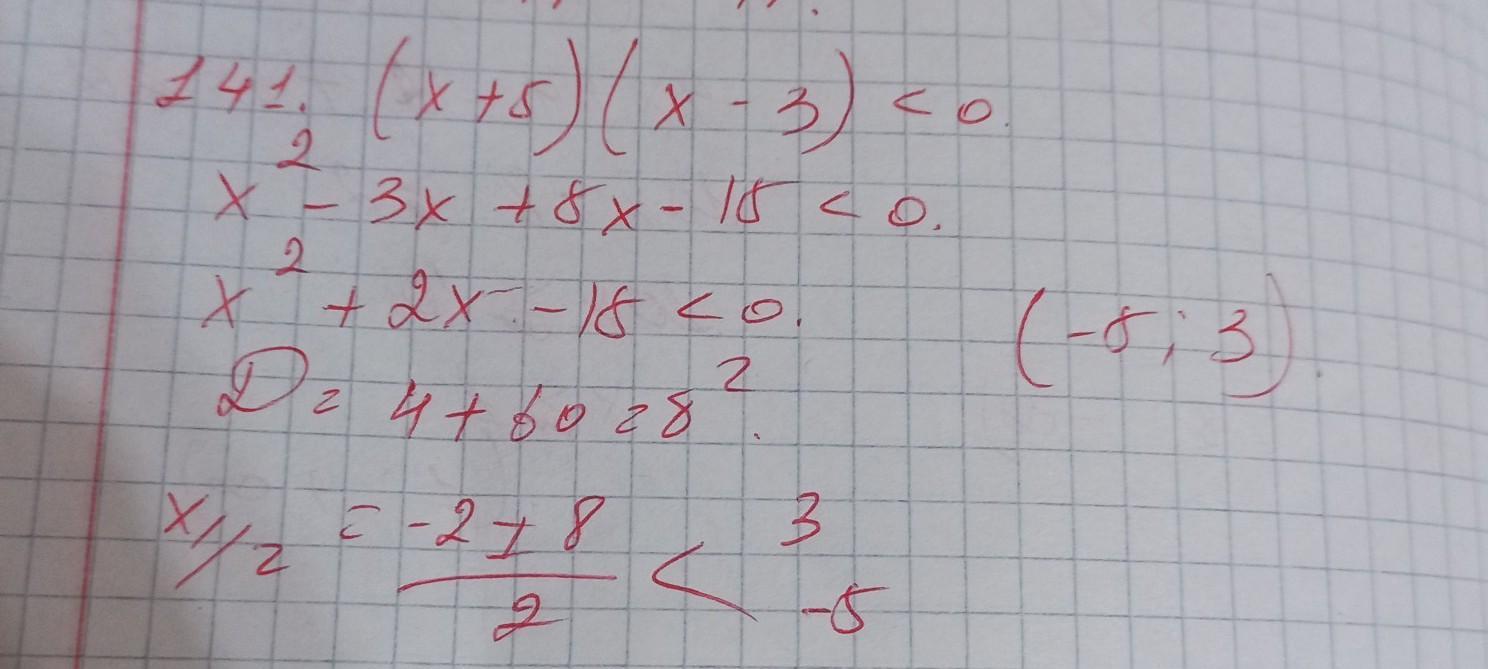 141. (x+5)(x-3) < 0.
x² - 3x + 5x - 15 < 0.
x² + 2x - 15 < 0.
(-5; 3).
D = 4 + 60 = 8².
x1/2 = (-2 ± 8)/2 < 3 -5